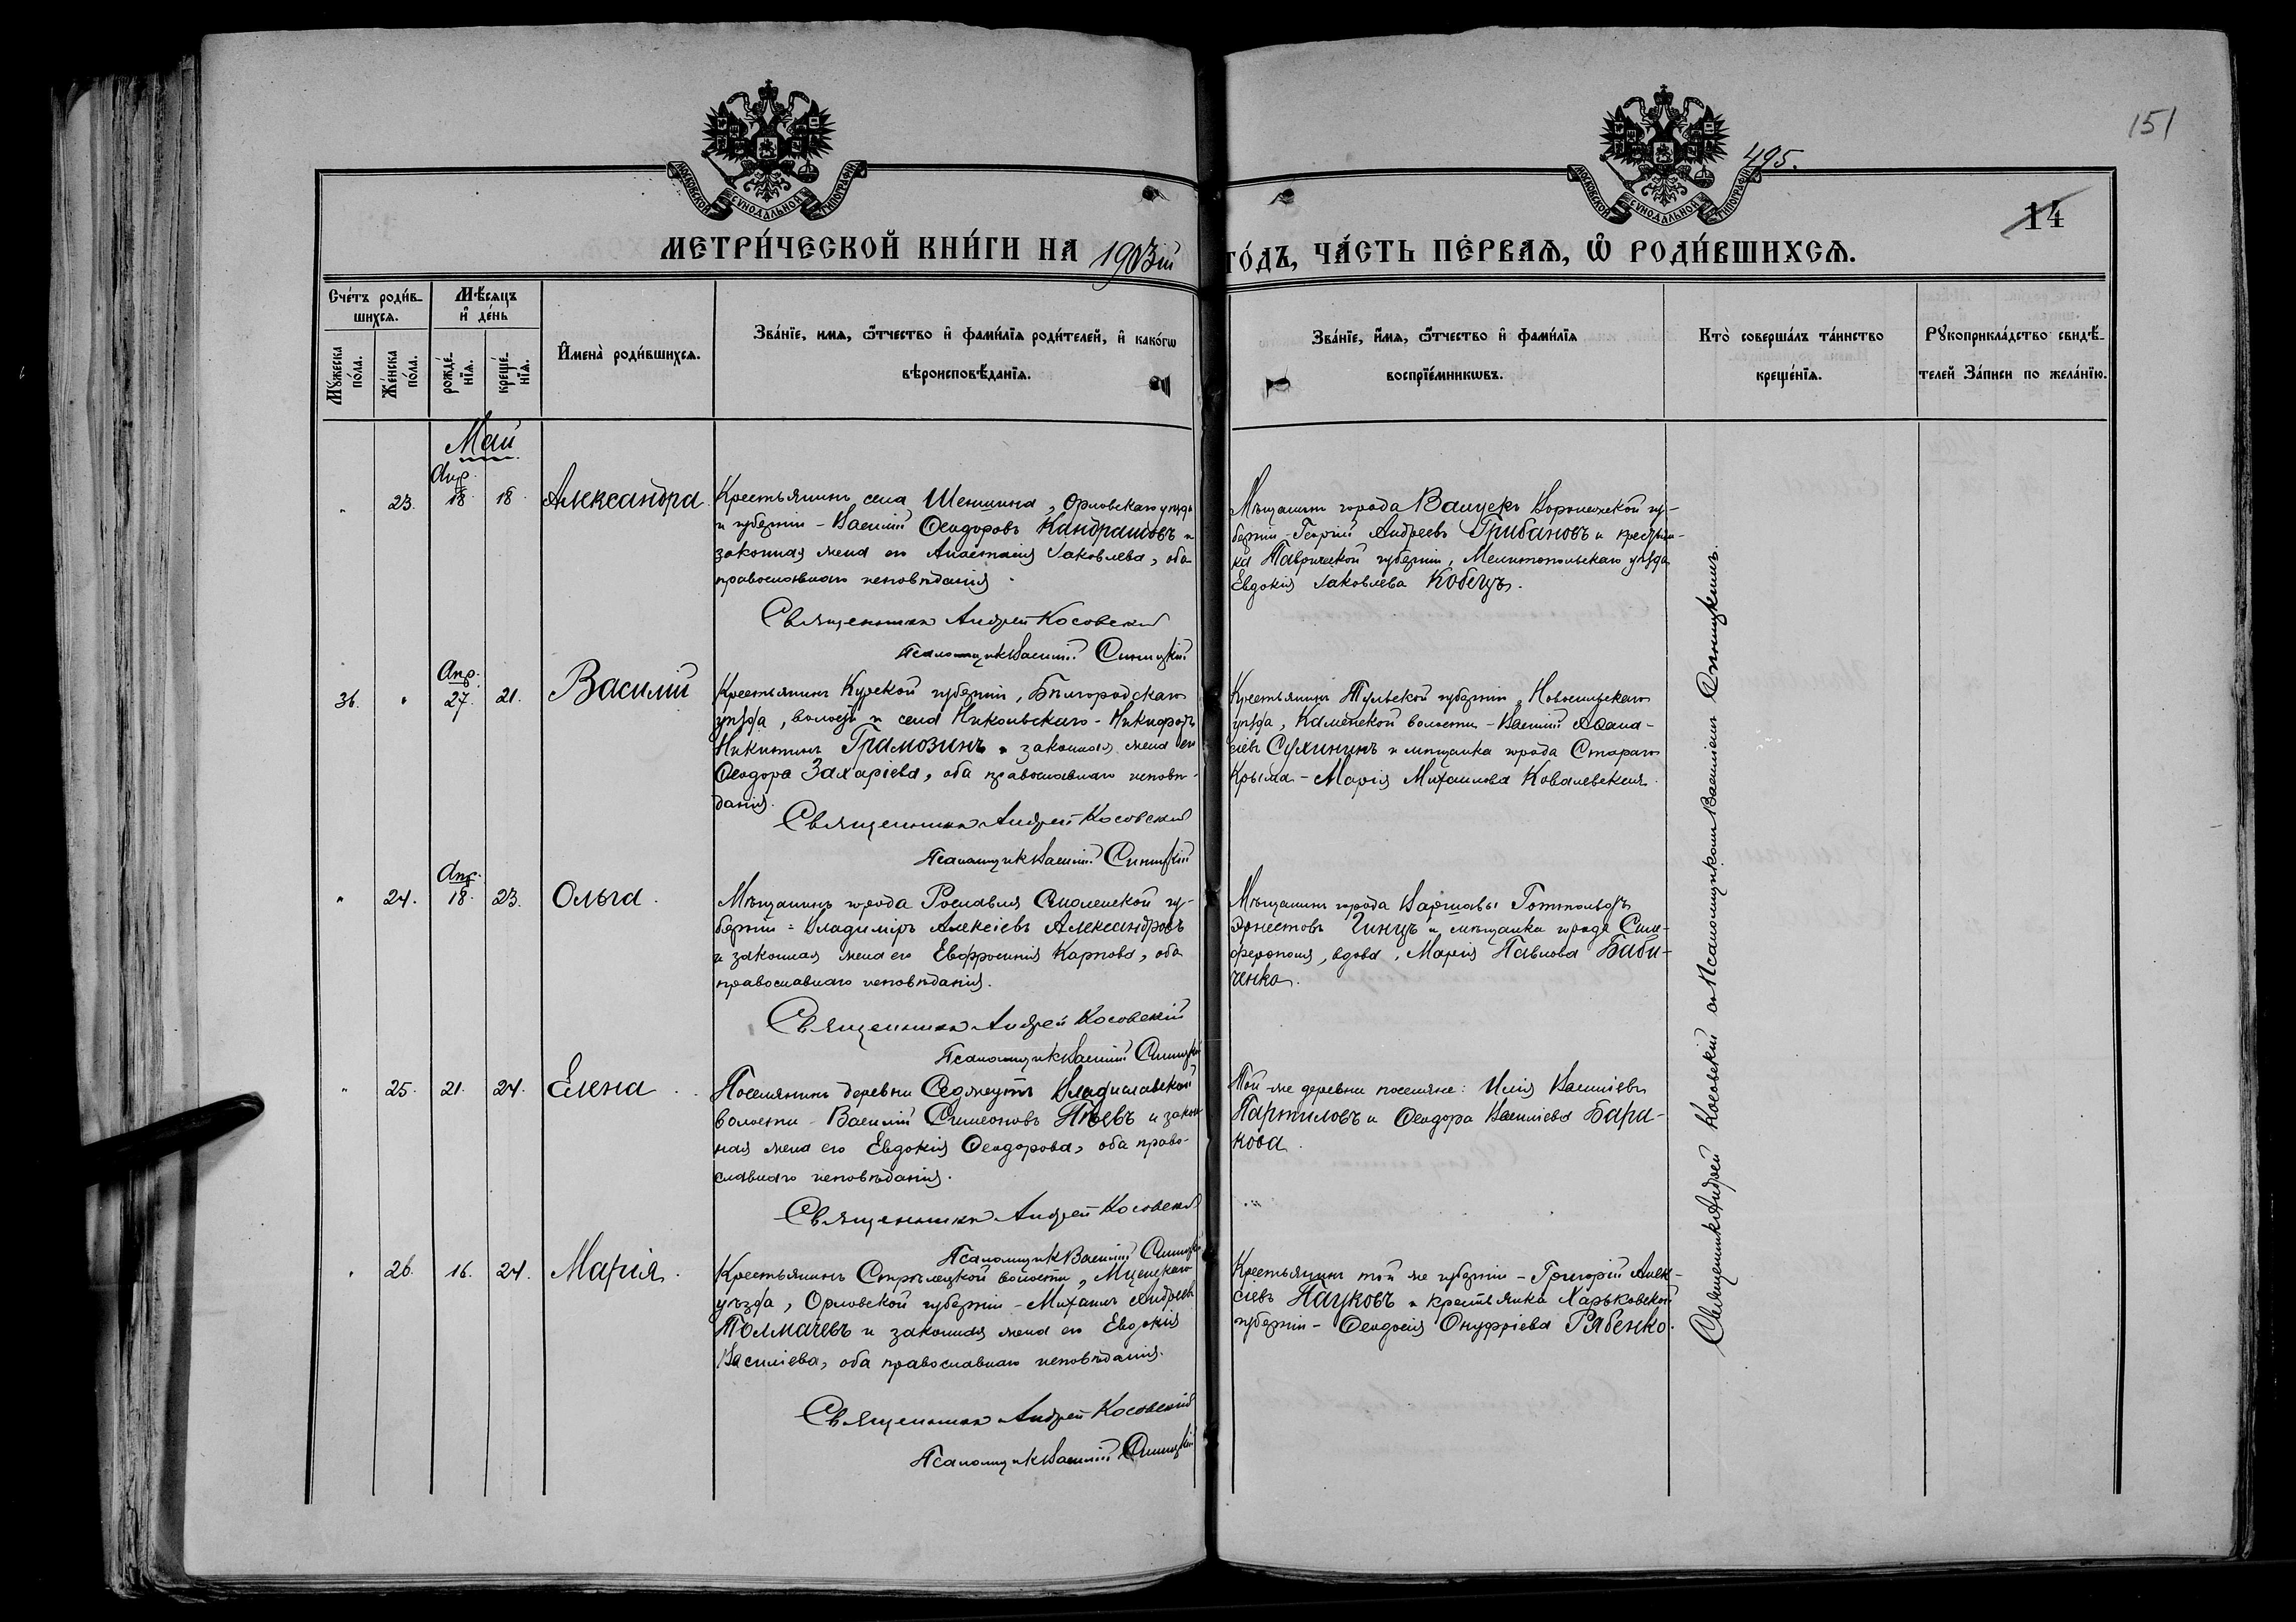 151
495.
14
МОСКОВСКОЙ СѴНОДАЛЬНОЙ ТИПОГРАФІИ
МОСКОВСКОЙ СѴНОДАЛЬНОЙ ТИПОГРАФІИ
МЕТРИ́ЧЕСКОЙ КНИ́ГИ НА 1903ій ГО́ДЪ, ЧА́СТЬ ПЕ́РВАѦ, Ѽ РОДИ́ВШИХСѦ.
Сче́тъ роди́в-
шихсѧ.
Мѣ́сѧцъ
и҆ де́нь
Мꙋ́жеска
по́ла.
Же́нска
по́ла.
рожде́-
нїѧ.
креще́-
нїѧ.
И҆мена̀ роди́вшихсѧ.
Зва́нїе, имѧ, ѻ҆́тчество и҆ фами́лїѧ роди́телей, и҆ како́гѡ
вѣроисповѣ́данїѧ.
Зва́нїе, и҆́мѧ, ѻ҆́тчество и҆ фами́лїѧ
воспрїе́мникѡвъ.
Кто̀ соверша́лъ та́инство
креще́нїѧ.
Рꙋкоприкла́дство свидѣ́-
телей За́писи по жела́нїю.
Май
Апр.
" 23. 18 18 Александра
Крестьянинъ села Шеншина, Орловскаго уѣзда
и губерніи - Василій Ѳеодоровъ Кандрашовъ и
законная жена его Анастасія Іаковлева, оба
православнаго исповѣданія.
Священникъ Андрей Косовскій
Псаломщикъ Василій Синицкій
Мѣщанинъ города Валуекъ Воронежской гу-
берніи - Георгій Андреевъ Грибановъ и крестьян-
ка Таврической губерніи, Мелитопольскаго уѣзда
Евдокія Іаковлева Кобецъ.
Апр.
36. " 27. 21. Василій
Крестьянинъ Курской губерніи, Бѣлгородскаго
уѣзда, волости и села Никольскаго - Никифоръ
Никитинъ Грамозинъ и законная жена его
Ѳеодора Захаріева, оба православнаго исповѣ-
данія.
Священникъ Андрей Косовскій
Псаломщикъ Василій Синицкій
Крестьянинъ Тульской губерніи, Новосильскаго
уѣзда, Каменской волости - Василій Аѳана-
сіевъ Сухининъ и мѣщанка города Стараго
Крыма - Марія Михаилова Ковалевская.
Апр.
" 24. 18. 23. Ольга.
Мѣщанинъ города Рославля Смоленской гу-
берніи - Владиміръ Алексіевъ Александровъ
и законная жена его Евфросинія Карпова, оба
православнаго исповѣданія.
Священникъ Андрей Косовскій
Псаломщикъ Василій Синицкій
Мѣщанинъ города Варшавы Готтольдъ
Эрнестовъ Гинцъ и мѣщанка города Сим-
ферополя, вдова, Марія Павлова Баби-
ченко.
" 25. 21. 24. Елена.
Поселянинъ деревни Седжеутъ Владиславской
волости - Василій Симеоновъ Пѣевъ и закон
ная жена его Евдокія Ѳеодорова, оба право-
славнаго исповѣданія.
Священникъ Андрей Косовскій
Псаломщикъ Василій Синицкій
Той-же деревни поселяне: Илія Василіевъ
Партиловъ и Ѳеодора Василіева Бара-
кова.
" 26. 16. 24. Марія.
Крестьянинъ Стрѣлецкой волости, Мценскаго
уѣзда, Орловской губерніи - Михаилъ Андреевъ
Толмачевъ и законная жена его Евдокія
Василіева, оба православнаго исповѣданія.
Священникъ Андрей Косовскій
Псаломщикъ Василій Синицкій
Крестьянинъ той же губерніи - Григорій Алек-
сіевъ Науковъ и крестьянка Харьковской
губерніи - Ѳеодосія Онуфріева Рябенко.
Священникъ Андрей Косовскій съ Псаломщикомъ Василіемъ Синицкимъ.